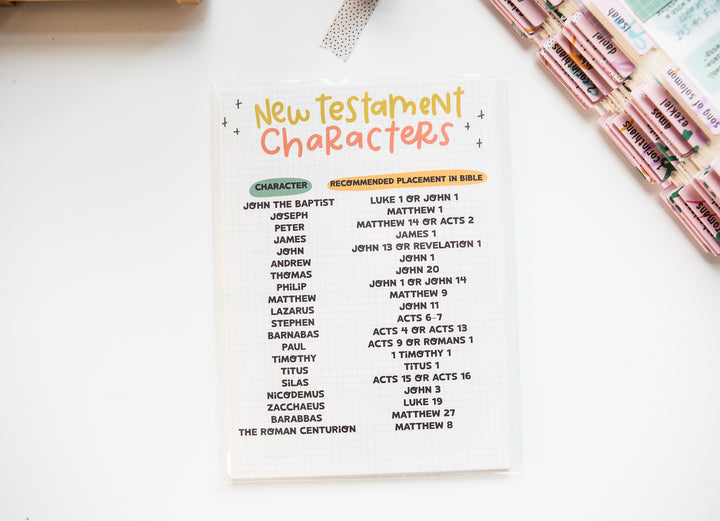 New Testament
Characters
CHARACTER RECOMMENDED PLACEMENT IN BIBLE
JOHN THE BAPTIST LUKE 1 OR JOHN 1
JOSEPH MATTHEW 1
PETER MATTHEW 14 OR ACTS 2
JAMES JAMES 1
JOHN JOHN 13 OR REVELATION 1
ANDREW JOHN 1
THOMAS JOHN 20
PHILIP JOHN 1 OR JOHN 14
MATTHEW MATTHEW 9
LAZARUS JOHN 11
STEPHEN ACTS 6-7
BARNABAS ACTS 4 OR ACTS 13
PAUL ACTS 9 OR ROMANS 1
TIMOTHY 1 TIMOTHY 1
TITUS TITUS 1
SILAS ACTS 15 OR ACTS 16
NICODEMUS JOHN 3
ZACCHAEUS LUKE 19
BARABBAS MATTHEW 27
THE ROMAN CENTURION MATTHEW 8
isaiah
song of solomon
daniel
ezekiel
2 corinthians
amos
corinthians
romans